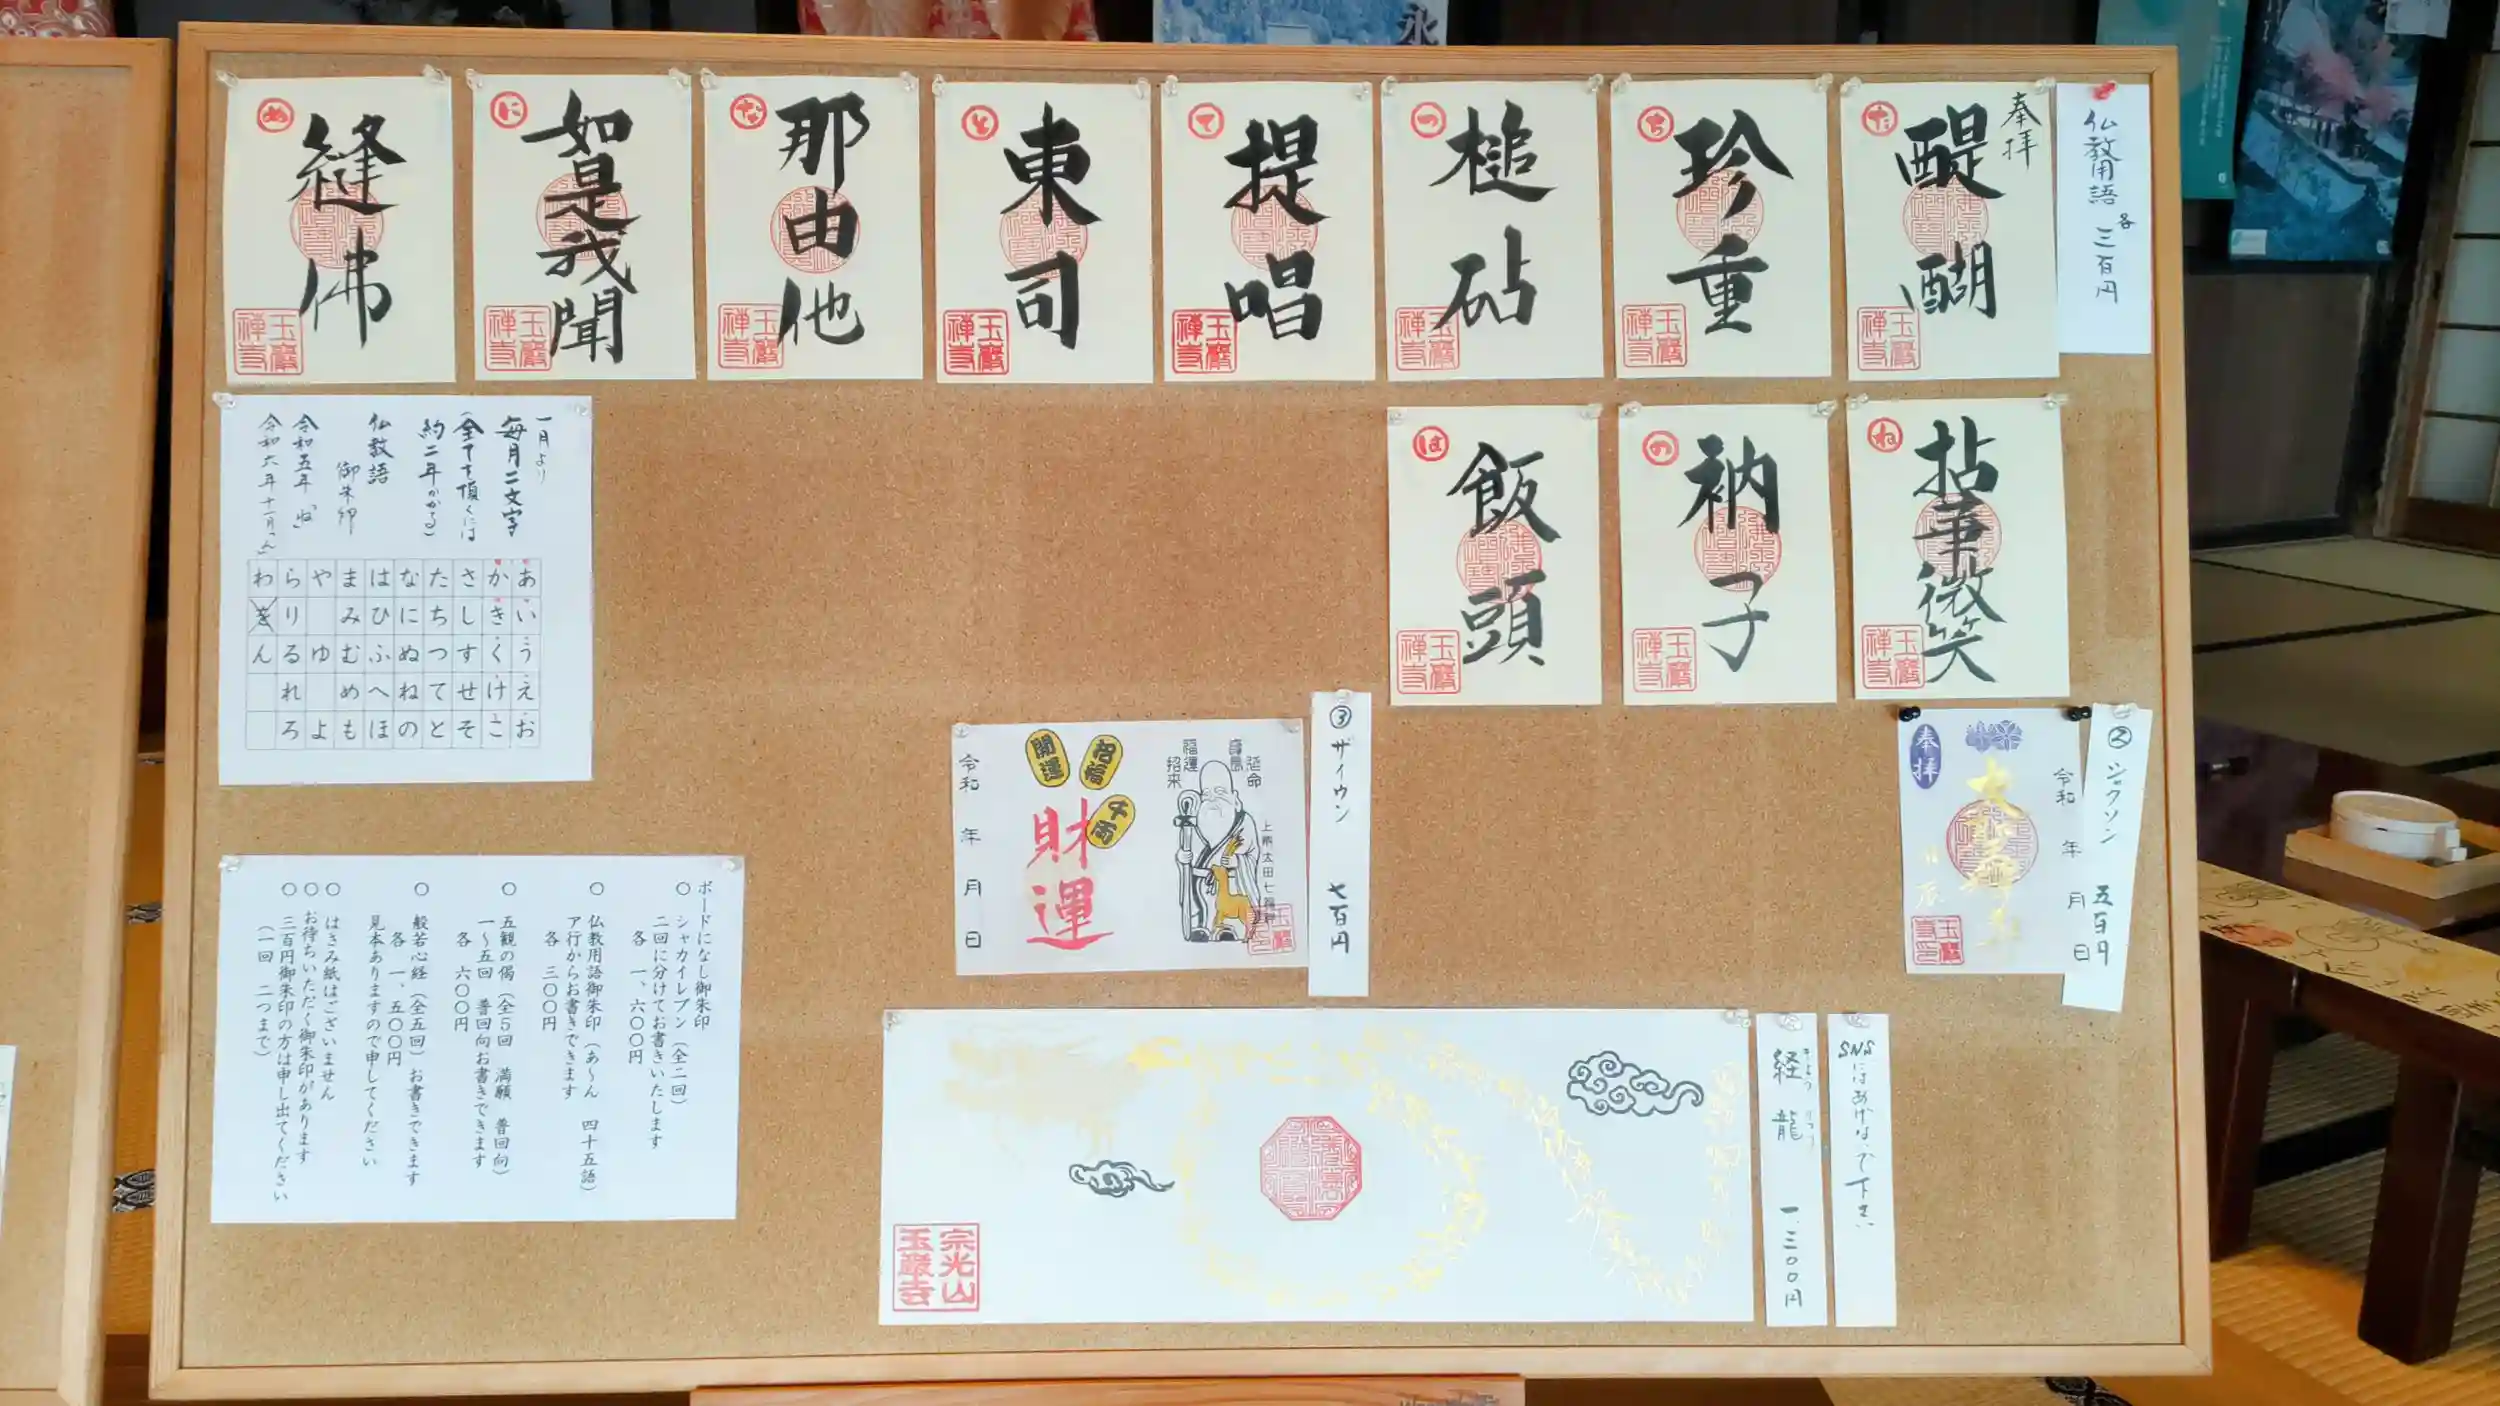 仏教用語 各 三百円
奉拝
た
醍醐
玉巖禅寺
ち
珍重
玉巖禅寺
つ
槌砧
玉巖禅寺
て
提唱
玉巖禅寺
と
東司
玉巖禅寺
な
那由他
玉巖禅寺
に
如是我聞
玉巖禅寺
ぬ
縫佛
玉巖禅寺
ね
拈華微笑
玉巖禅寺
の
衲子
玉巖禅寺
は
飯頭
玉巖禅寺
一月より
毎月二文字
(全てを頂くには
約二年かかる)
仏教語
御朱印
令和五年
令和六年十一月
あいうえお
かきくけこ
さしすせそ
たちつてと
なにぬねの
はひふへほ
まみむめも
やゆよ
らりるれろ
わをん
② ジャクソン 五百円
奉拝
令和 年 月 日
③ ザイウン 七百円
康寿延命
福運招来
上州太田七福神
開運
招福
千両
財運
令和 年 月 日
ボードになし御朱印
○ シャカイレブン(全二回)
二回に分けてお書きいたします
各 一、六〇〇円
○ 仏教用語御朱印(あ~ん 四十五語)
ア行からお書きできます
各 三〇〇円
○ 五観の偈(全5回 満願 普回向)
一~五回 普回向お書きできます
各 六〇〇円
○ 般若心経(全五回)お書きできます
各 一、五〇〇円
見本ありますので申してください
○ はさみ紙はございません
○ お待ちいただく御朱印があります
○ 三百円御朱印の方は申し出てください
(一回 二つまで)
SNSにはあげないで下さい
経龍 一、三〇〇円
きょう りゅう
宗光山
玉巖寺